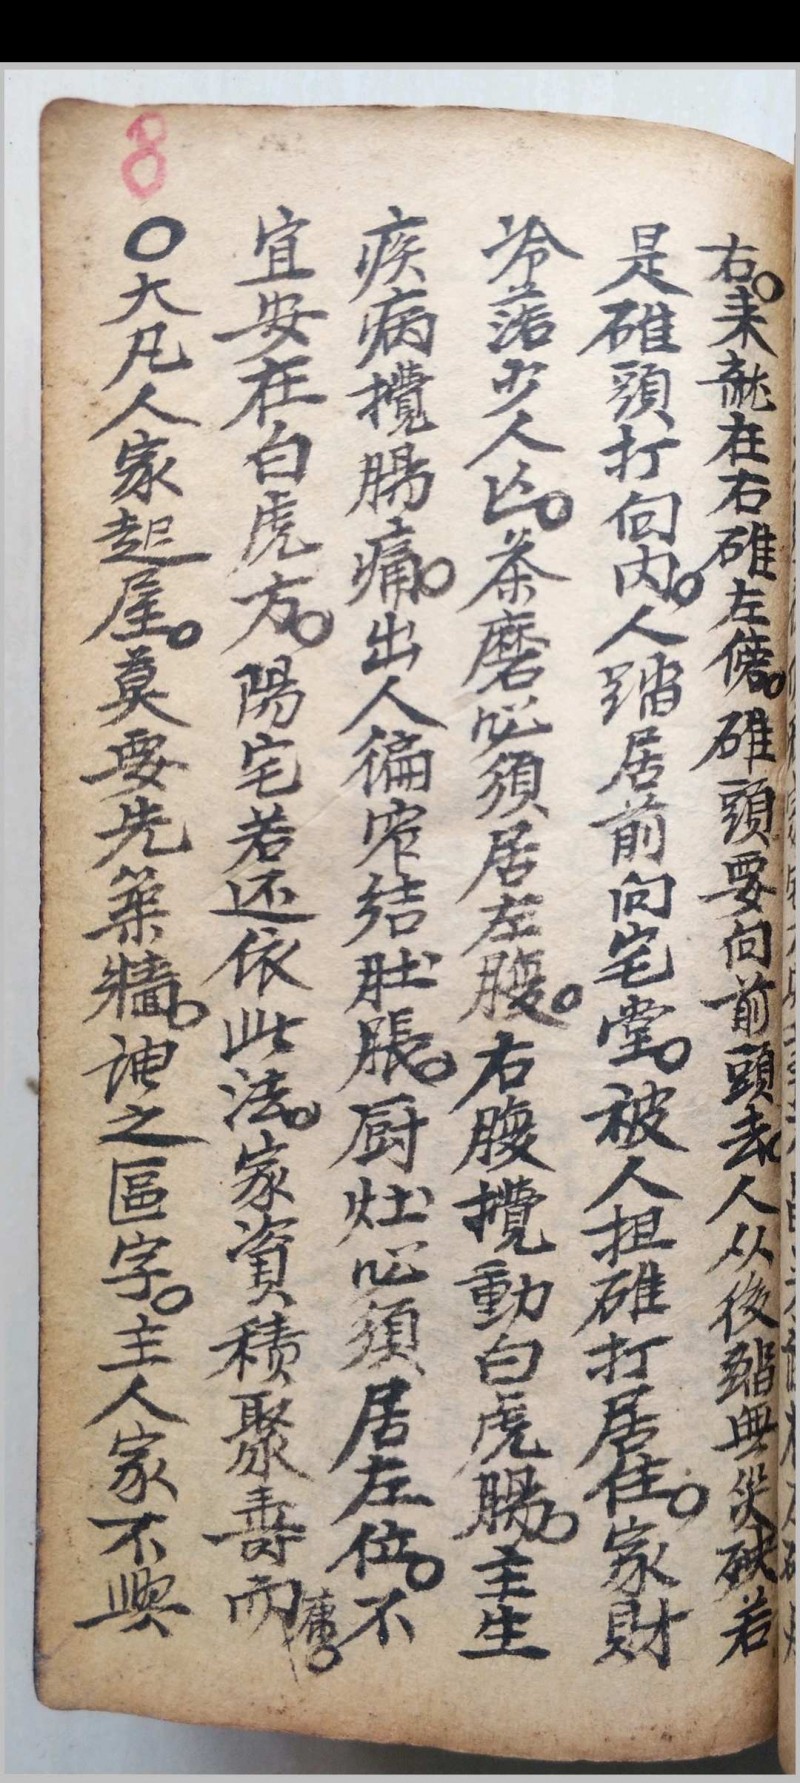 右。来龍在右碓左傍。碓頭要向前頭去。人从後踏無災殃若
是碓頭打向内。人踏居前向宅堂。被人担碓打居住。家財
冷落少人亡。茶磨必須居左腹。右腹攪動白虎腸。主生
疾病攪腸痛。出人徧窄結肚脹。厨灶必須居左位。不
宜安在白虎方。陽宅若还依此法。家資積聚壽而康。
〇大凡人家起屋。莫要先築牆。謂之區字。主人家不興
8